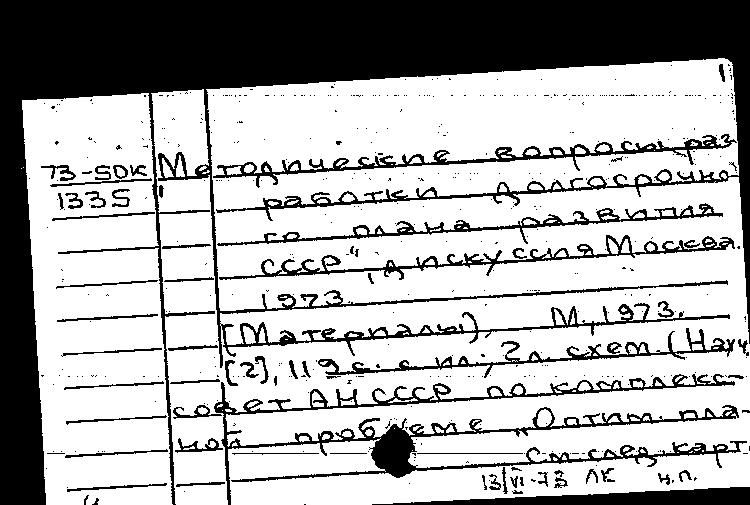 1
73-5DK Методические вопросы раз-
1335 "работки долгосрочно-
го плана развития
СССР", дискуссия Москва.
1973.
[Материалы]. М., 1973.
[2], 119 с. с ил.; 2 л. схем. (Науч.
совет АН СССР по комплекс-
ной проблеме „Оптим. пла-
См. след. карт.
13/VI-73 ЛК н.п.